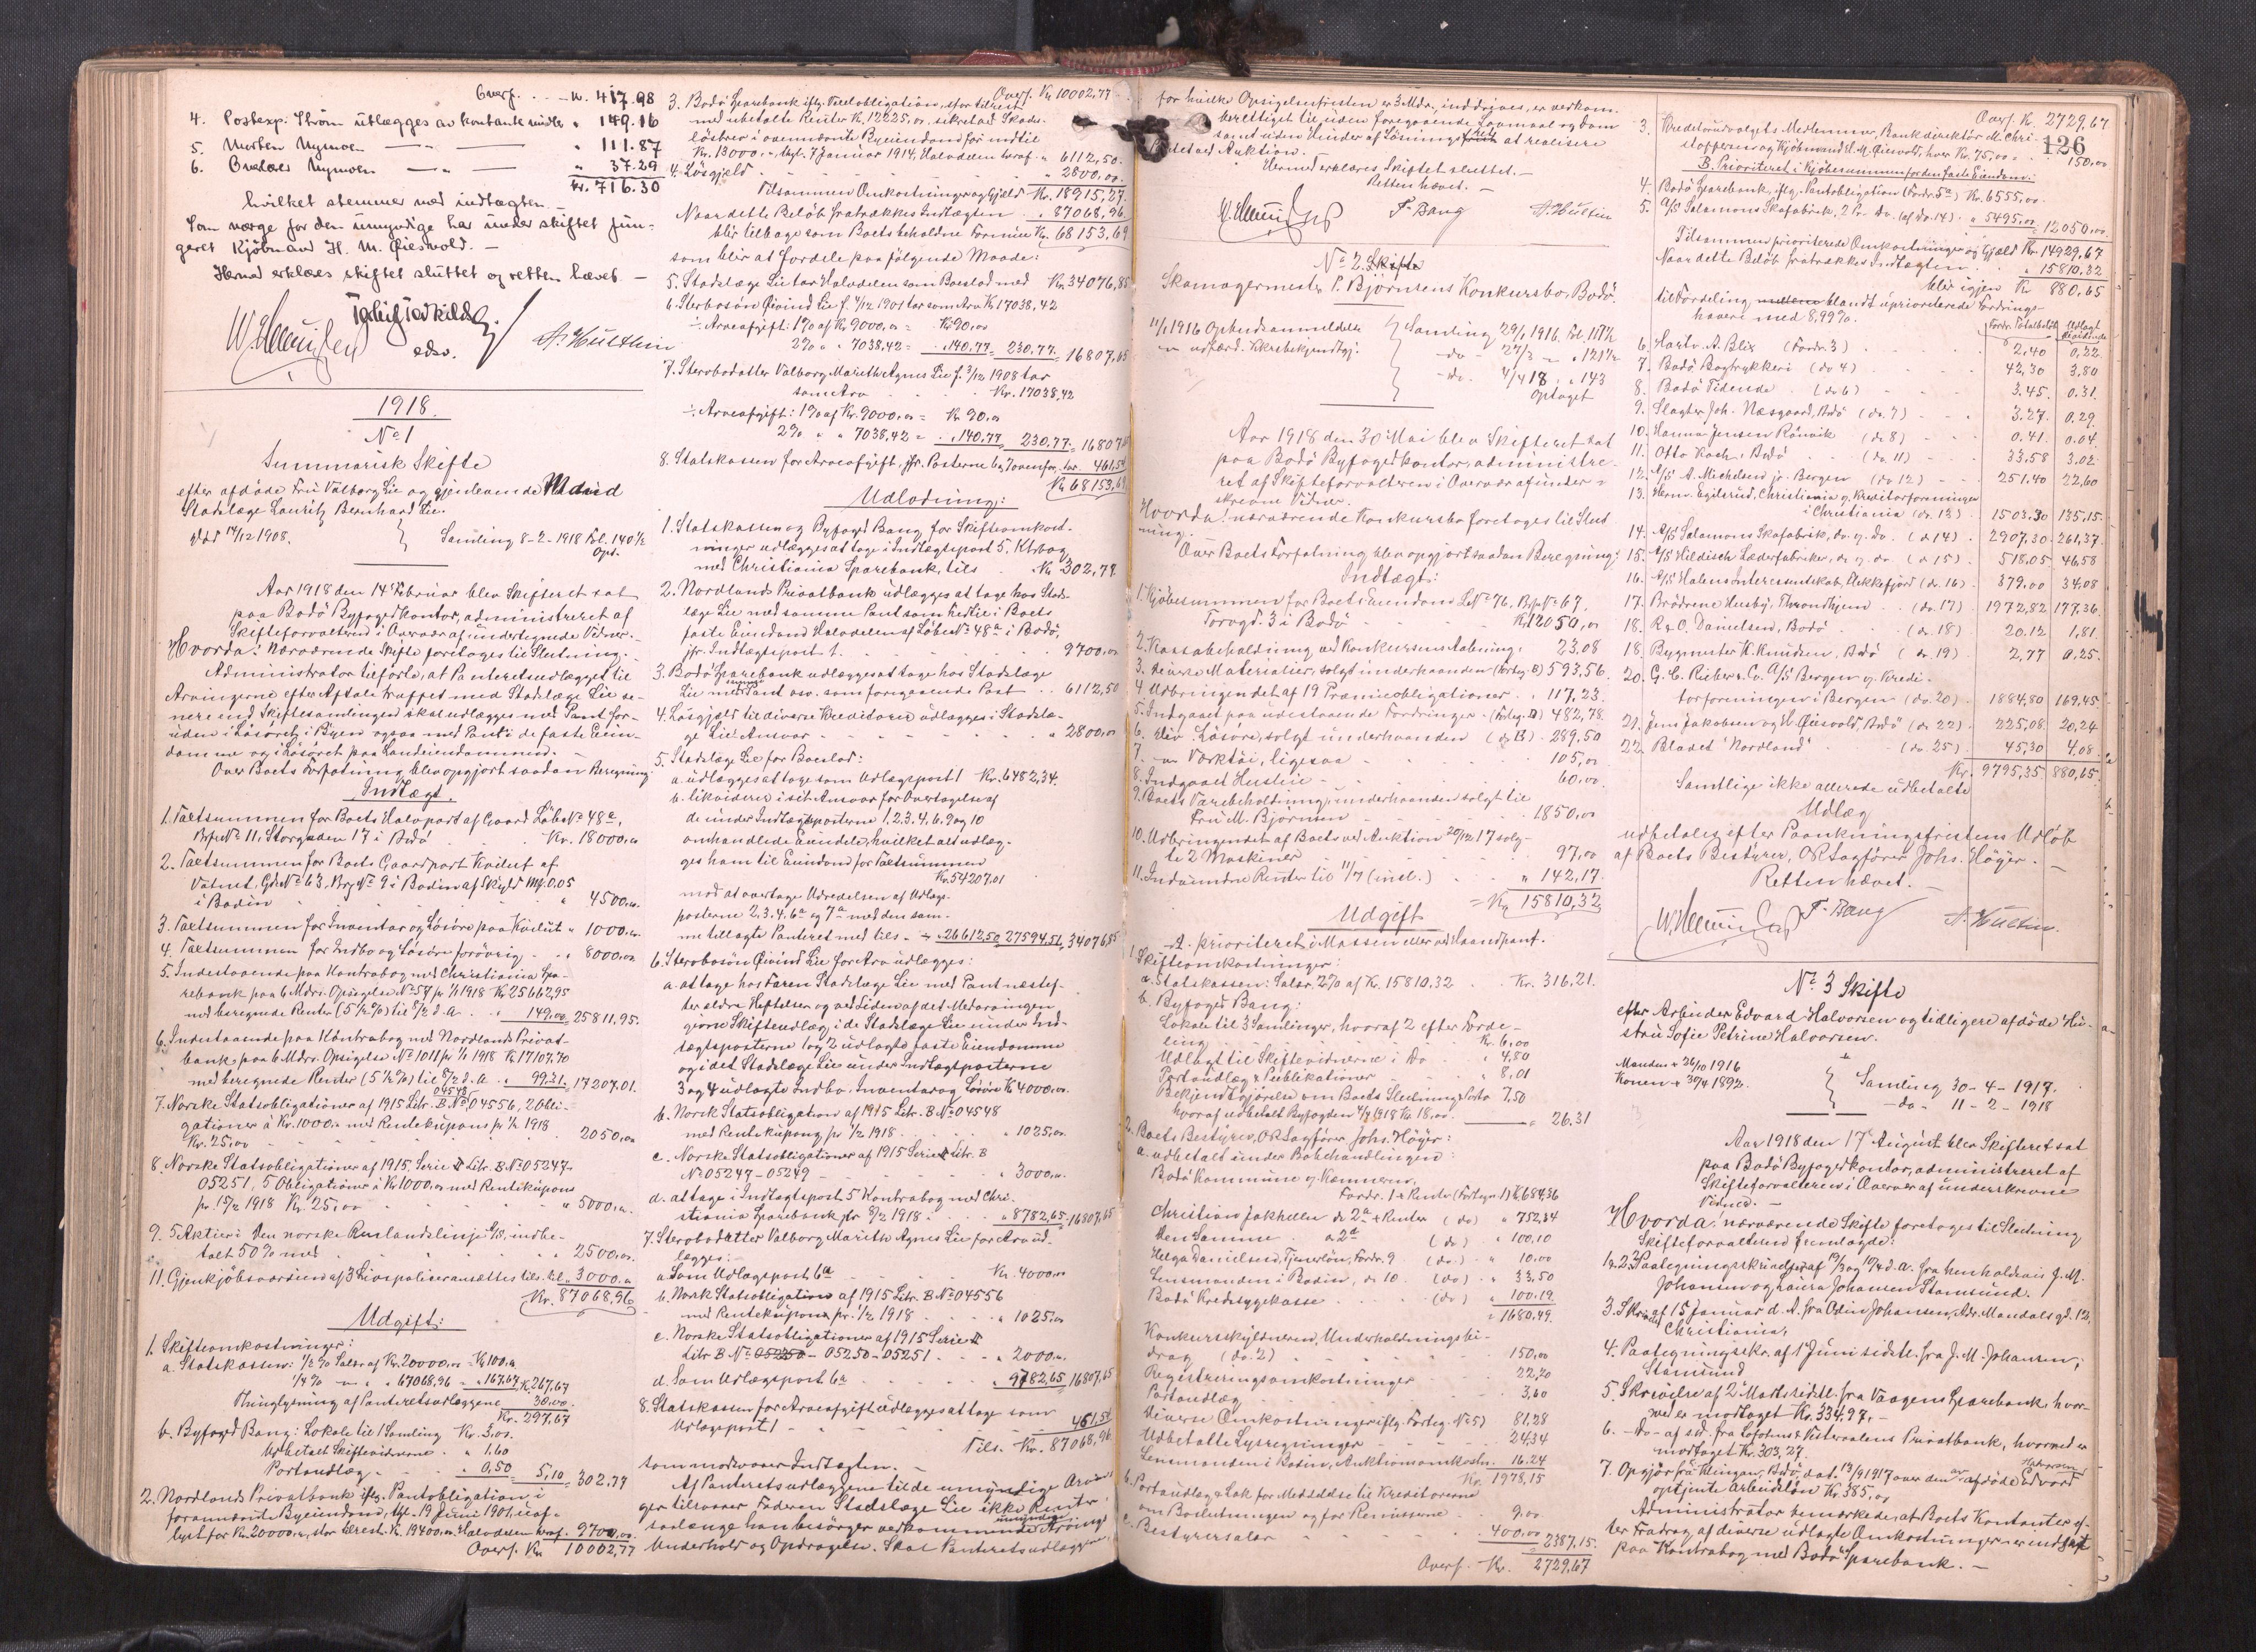 Overf. . . - Kr. 417.98
4. Postexp. Strøm utlægges av kontante midler " 149.16
5. Morten Nymoen — " — " 111.87
6. Nymoen — " — " 37.29
Kr. 716.30
hvilket stemmer med indtægten.
Som værge for den umyndige har under skiftet fun-
geret Kjøbmand H. M. Qiesvold. —
Hermed erklæres skiftet sluttet og retten hævet —
edsv.
A. Hultin
1918.
No 1
Summarisk Skifte
efter afdøde Fru Valborg Lie og gjenlevende Mand
Stadslæge Lauritz Bernhard Lie.
død 14/12 1908.
Samling 8-2-1918 Fol. 140 1/2
Opt.
Aar 1918 den 14 Februar blev Skifteret sat
paa Bodø Byfogedkontor, administreret af
Skifteforvalteren i Overvær af undertegnede Vidner. -
Hvorda: Nærværende Skifte foretoges til Slutning. -
Administrator tilførte, at Panteretsudlægget til
Arvingerne efter Aftale truffet med Stadslæge Lie se-
nere end Skiftesamlingen skal udlægges med Pant for-
uden i Løsøret i Byen ogsaa med Pant i de faste Eien-
domme og i Løsøret paa Landeiendommen. -
Over Boets Forfatning blev opgjort saadan Beregning:
Indtægt.
1. Taxtsummen for Boets Halvpart af Gaard Løbe No 48a,
Brs No 11, Storgaden 17 i Bodø . Kr. 18000,00
2. Taxtsummen for Boets Gaardpart Kvilut af
Vatnet, Gds No 63, Brg No 9 i Bodin af Skyld Mk. 0,05
i Bodin " 4500,00
3. Taxtsummen for Inventar og Løsøre paa Kvilut " 1000,00
4. Taxtsummen for Indbo og Løsøre forøvrig . " 8000,00
5. Indestaaende paa Kontrabog med Christiania Spa-
rebank paa 6 Mdrs. Opsigelse No 57 pr 1/1 1918 Kr 25662,95
med beregnede Renter (5 1/2 %) til 8/2 d.a. . " 149,00 = 25811,95.
6. Indestaaende paa Kontrabog med Nordlands Privat-
bank paa 6 Mdrs. Opsigelse No 1011 pr 1/1 1918 Kr 17107,70
med beregnede Renter (5 1/2 %) til 8/2 d.a. . " 99,31 = 17207,01.
7. Norske Statsobligationer af 1915 Litr. B No 04548 04556, 2 Obli-
gationer à Kr. 1000.- med Rentekupons pr 1/2 1918
Kr. 25,00 2050,00
8. Norske Statsobligationer af 1915, Serie II Litr. B No 05247-
05251, 5 Obligationer à Kr 1000,00 med Rentekupons
pr. 15/2 1918 Kr. 25,00 " 5000,00
9. 5 Aktier i Den norske Ruslandslinje A/S, indbe-
talt 50% med " 2500,00
11. Gjenkjøbsværdien af 3 Livspolicer ansættes tils. til " 3000,00
Kr. 87068,96
Udgift:
1. Skifteomkostninger:
a. Statskassen: 1/2 % Salær af Kr. 20000,00 = Kr 100,00
1/4 % — " — " 67068,96 = " 167,67 Kr 267,67
Thinglysning af Panteretsudlæggene 30,00
Kr. 297,67
b. Byfoged Bang: Lokale til 1 Samling Kr. 3,00.
Udbetalt Skiftevidnerne . " 1,60
Portoudlæg " 0,50 = 5,10 = 302,77
2. Nordlands Privatbank iflg. Pantobligation i
forannævnte Byeiendom, thgl. 19 Juni 1901, uaf-
lyst for Kr. 20000,00, stor tilrest Kr. 19400,00. Halvdelen heraf . 9700,00.
Overf. Kr. 10002,77
Overf. Kr 10002,77
3. Bodø Sparebank iflg. Pantobligation, stor tilrest
med ubetalte Renter Kr. 12225,00, sikret ved Skades-
løsbrev i ovennævnte Byeiendom for indtil
Kr. 13000,- thgl. 7 Januar 1914, Halvdelen heraf . " 6112,50.
4. Løsgjæld " 2800,00.
Tilsammen Omkostninger og Gjæld Kr. 18915,27.
Naar dette Beløb fratrækkes Indtægten . " 87068,96
blir tilbage som Boets beholdne Formue Kr. 68153,69
som blir at fordele paa følgende Maade:
5. Stadslæge Lie tar Halvdelen som Boeslod med Kr. 34076,85
6. Sterbosøn Øivind Lie f. 4/12 1901 tar som Arv Kr 17038,42
÷ Arveafgift: 1% af Kr. 9000,00 = Kr 90,00
2% " " 7038,42 = . " 140,77 = 230,77 = 16807,65
7. Sterbodatter Valborg Marith Agnes Lie f. 3/12 1908 tar
som Arv Kr. 17038,42
÷ Arveafgift: 1% af Kr. 9000,00 = Kr 90,00
2% " " 7038,42 = . " 140,77 = 230,77 = 16807,65
8. Statskassen for Arveafgift, jfr. Posterne 6 og 7 ovenfor, tar . 461,54
Kr 68153,69
Udlodning:
1. Statskassen og Byfoged Bang for Skifteomkost-
ninger udlægges at tage i Indtægtspost 5, Ktrbog
med Christiania Sparebank, tils . Kr. 302,77.
2. Nordlands Privatbank udlægges at tage hos Stads-
læge Lie med samme Pant som hidtil i Boets
faste Eiendom Halvdelen af Løbe No 48a i Bodø,
jfr. Indtægtspost 1. 9700,00
3. Bodø Sparebank udlægges at tage hos Stadslæge
Lie med samme Pant osv. som foregaaende Post . . 6112,50
4. Løsgjæld til diverse Kreditorer udlægges i Stadslæ-
ge Lies Ansvar " 2800,00
5. Stadslæge Lie for Boeslod:
a. udlægges at tage som Udlægspost 1 Kr. 6482,34.
b. likviderer i sit Ansvar for Overtagelse af
de under Indtægtsposterne 1, 2, 3, 4, 6, 9 og 10
omhandlede Eiendele, hvilket alt udlæg-
ges ham til Eiendom for Taxtsummen
Kr. 54207,01
mod at overtage Udredelsen af Udlægs-
posterne 2, 3, 4, 6a og 7a med den sam-
me tillagte Panteret med tils. - ÷ " 26612,50 27594,51 34076,85
6. Sterbosøn Øivind Lie for Arv udlægges:
a. at tage hos Faren Stadslæge Lie med Pant næstef-
ter ældre Heftelser og ved Siden af det Medarvingen
givne Skifteudlæg i de Stadslæge Lie under Ind-
tægtsposterne 1 og 2 udlagte faste Eiendomme
og i det Stadslæge Lie under Indtægtsposterne
3 og 4 udlagte Indbo, Inventar og Løsøre Kr. 4000,00.
b. Norsk Statsobligation af 1915 Litr. B No 04548
med Rentekupong pr 1/2 1918 . . " 1025,00.
c. Norske Statsobligationer af 1915 Serie II Litr. B
No 05247-05249 " 3000,00.
d. at tage i Indtægtspost 5 Kontrabog med Chri-
stiania Sparebank pr 8/2 1918 . . " 8782,65 = 16807,65
7. Sterbodatter Valborg Marith Agnes Lie for Arv ud-
lægges:
a. Som Udlægspost 6a Kr. 4000,00
b. Norsk Statsobligation af 1915 Litr. B No 04556
med Rentekupons pr. 1/2 1918 " 1025,00
c. Norske Statsobligationer af 1915 Serie II
Litr B No 05250-05251 " 2000,00.
d. Som Udlægspost 6d " 9782,65 16807,65
8. Statskassen for Arveafgift udlægges at tage som
Udlægspost 1 461,54
Tils. Kr. 87068,96
som modsvarer Indtægten. —
Af Panteretsudlæggene til de umyndige Arvin-
ger tilsvarer Faderen Stadslæge Lie ikke Renter
saalænge han besørger vedkommende umyndige Arvings
Underhold og Opdragelse. Skal Panteretsudlæggene,
for hvilke Opsigelsesfristen er 3 Mdr. inddrives, er vedkom.
berettiget til, uden foregaaende Lovmaal og Dom
samt uden Hinder af Løsningsret at realisere
Pantet ved Auktion.
Hermed erklæres Skiftet sluttet. -
Retten hævet. -
F. Bang
A. Hultin
No 2. Skifte
Skomagermester P. Bjørnsens Konkursbo, Bodø.
11/1 1916 Opbudsanmeldelse
— " — udfærd. Skiftebekjendtgj.
Samling 29/1 1916. Fol. 118 1/2
- do - 27/3 - " - " 121 1/2
- do. 4/4 18 " " 143
Optaget
Aar 1918 den 30 Mai blev Skifteret sat
paa Bodø Byfogedkontor, administre-
ret af Skifteforvalteren i Overvær af under-
skrevne Vidner.
Hvorda: nærværende Konkursbo foretoges til Slut-
ning.
Over Boets Forfatning blev opgjort saadan Beregning:
Indtægt:
1. Kjøbesummen for Boets Eiendom L. No 76, Brs No 67,
Torvgd. 3 i Bodø Kr. 12050,00
2. Kassabeholdning ved Konkursens Aabning . 23.08
3. Diverse Materialier, solgt underhaanden (Forteg. C) 593,56.
4. Udbringendet af 19 Præmieobligationer . " 117,23.
5. Indgaaet paa udestaaende Fordringer . (Forteg. D) 482,78.
6. Div. Løsøre, solgt underhaanden (do E) . 289,50
7. — " Værktøi, ligesaa 105,00
8. Indgaaet Husleie 60,00.
9. Boets Varebeholdning, underhaanden solgt til
Fru M. Bjørnsen 1850,00
10. Udbringendet af Boets ved Auktion 20/12 17 solg-
te 2 Maskiner 97,00
11. Indvundne Renter til 11/7 (incl.) " 142,17.
Kr. 15810,32
Udgift
A. prioriteret i Massen eller ved Haandpant.
1. Skifteomkostninger:
a. Statskassen: Salær, 2% af Kr. 15810,32 . Kr. 316,21.
b. Byfoged Bang:
Lokale til 3 Samlinger, hvoraf 2 efter Forde-
ling Kr. 6,00
Udlagt til Skiftevidnerne i Do " 4,80
Portoudlæg & Publikationer " 8,01
Bekjendtgjørelse om Boets Slutning & Porto 7,50
hvoraf udbetalt Byfogden 4/4 1918 Kr. 18,00. — " 26.31
2. Boets Bestyrer, OR Sagfører Johs. Høyer:
a. udbetalt under Bobehandlingen:
Bodø Kommune v. Kæmneren,
Fordr. 1 + Renter (Fortegn. 1) Kr. 684,36
Christian Jakhelln do 2a + Renter (do) " 752,34
Den Samme " 2a (do) " 100,10
Helga Danielsen, Tjenerløn, Fordr. 9 (do.) " 10.00
Lensmanden i Bodin, do 10. (do) " 33,50
Bodø Kredssygekasse (do) " 100.19
" 1680,49.
Konkursskyldneren, Underholdningsbi-
drag (do. 2) 150,00
Registreringsomkostninger 22,20
Portoudlæg 3,60
Diverse Omkostninger iflg. Forteg. No 5) 81,28
Udbetalte Lysregninger 24,34
Lensmanden i Bodin, Auktionsomkostn. 16.24
Kr. 1978,15
b. Portoudlæg & Lak for Meddelelse til Kreditorerne
om Beslutningen og for Remisserne 9.00
c. Bestyrersalær . 400,00 = 2387,15.
Overf. Kr. 2729,67
Overf. Kr. 2729,67
126
3. Kreditorudvalgets Medlemmer, Bankdirektør M. Chri-
stoffersen og Kjøbmand H. M. Qiesvold, hver Kr. 75,00 = 150,00
B. Prioriteret i Kjøbesummen for den faste Eiendom:
4. Bodø Sparebank, iflg. Pantobligation (Fordr. 5a) Kr. 6555,00.
5. A/S Salomons Skofabrik, 2 Pr. do. (af do. 14) . " 5495,00 = 12050,00.
Tilsammen prioriterede Omkostninger og Gjæld Kr. 14929,67
Naar dette Beløb fratrækkes Indtægten " 15810,32
blir igjen Kr 880,65
til Fordeling blandt uprioriterede Fordrings-
havere med 8,99%.
Fordr. Totalbeløb Udlagt Dividende
6. Hartv. A. Blix (Fordr. 3) 2,40 0,22.
7. Bodø Bogtrykkeri (do 4) 42,30 3,80
8. Bodø Tidende (do 6) 3.45. 0.31.
9. Slagter Joh. Næsgaard, Bodø (do. 7) 3.27. 0,29.
10. Hanna Jensen Rønvik (do 8) 0.41. 0.04.
11. Otto Koch, Bodø (do. 11) 33,58 3,02
12. A/S A. Michelsen jr. Bergen (do 12) 251.40 22,60
13. Herm. Egilsrud, Christiania v. Kreditorforeningen
i Christiania (do. 13) 1503,30 135,15.
14. A/S Salomons Skofabrik, do. v. Do. (do 14) 2907,30 261,37.
15. A/S Hildisch Læderfabriker, do v. do (do 15) 518,05 46,58
16. A/S Halens Interessentskab, Flekkefjord (do. 16) 379,00 34,08
17. Brødrene Husby, Throndhjem (do. 17) 1972,82 177,36.
18. R & O. Danielsen, Bodø (do. 18) 20.12 1,81.
18. Bygmester K. Knudsen, Bodø (do. 19) 2,77 0,25.
20. G. C. Rieber & Co. A/S Bergen v. Kredi-
torforeningen i Bergen (do. 20) 1884,80 169,45.
21. Jens Jakobsen og H. Qiesvold, Bodø (do 22) 225,08 20,24
22. Bladet "Nordland" (do. 25) 45,30 4,08.
Kr. 9795,35 880,65.
Samtlige ikke allerede udbetalte
Udlæg
udbetales efter Paaankningsfristens Udløb
af Boets Bestyrer, OR Sagfører Johs. Høyer. —
Retten hævet. —
F. Bang
A. Hultin.
No 3 Skifte
efter Arbeider Edvard Halvorsen og tidligere afdøde Hu-
stru Sofie Petrine Halvorsen.
Manden + 26/10 1916
Konen + 30/4 1892.
Samling 30-4-1917.
- do - 11-2-1918
Aar 1918 den 17 August blev Skifteret sat
paa Bodø Byfogedkontor, administreret af
Skifteforvalteren i Overvær af underskrevne
Vidner. —
Hvorda: nærværende Skifte foretoges til Slutning
Skifteforvalteren fremlagde:
1 & 2. 2 Paategningsskrivelser af 19/3 og 19/4 d.a. fra henholdsvis J. M.
Johansen og Laura Johansen Stamsund.
3. Skriv. af 15 Januar d. A. fra Odin Johansen, Adr. Mandals gd. 12,
Christiania,
4. Paategningsskr. af 1 Juni sidstl. fra J. M. Johansen,
Stamsund
5. Skrivelse af 2 Marts sidstl. fra Vaagens Sparebank, hvor-
ved er modtaget Kr. 334,97. -
6. - Do - af s.d. fra Lofotens & Vesteraalens Privatbank, hvorved er
modtaget Kr. 303,27.
7. Opgjør fra Klingan, Bodø, dat. 13/9 1917 over den av afdøde Edvard Halvorsen
optjente Arbeidsløn Kr. 385,00
Administrator bemærkede, at Boets Kontanter ef-
ter Fradrag af diverse udlagte Omkostninger er indsat
paa Kontrabog med Bodø Sparebank. —